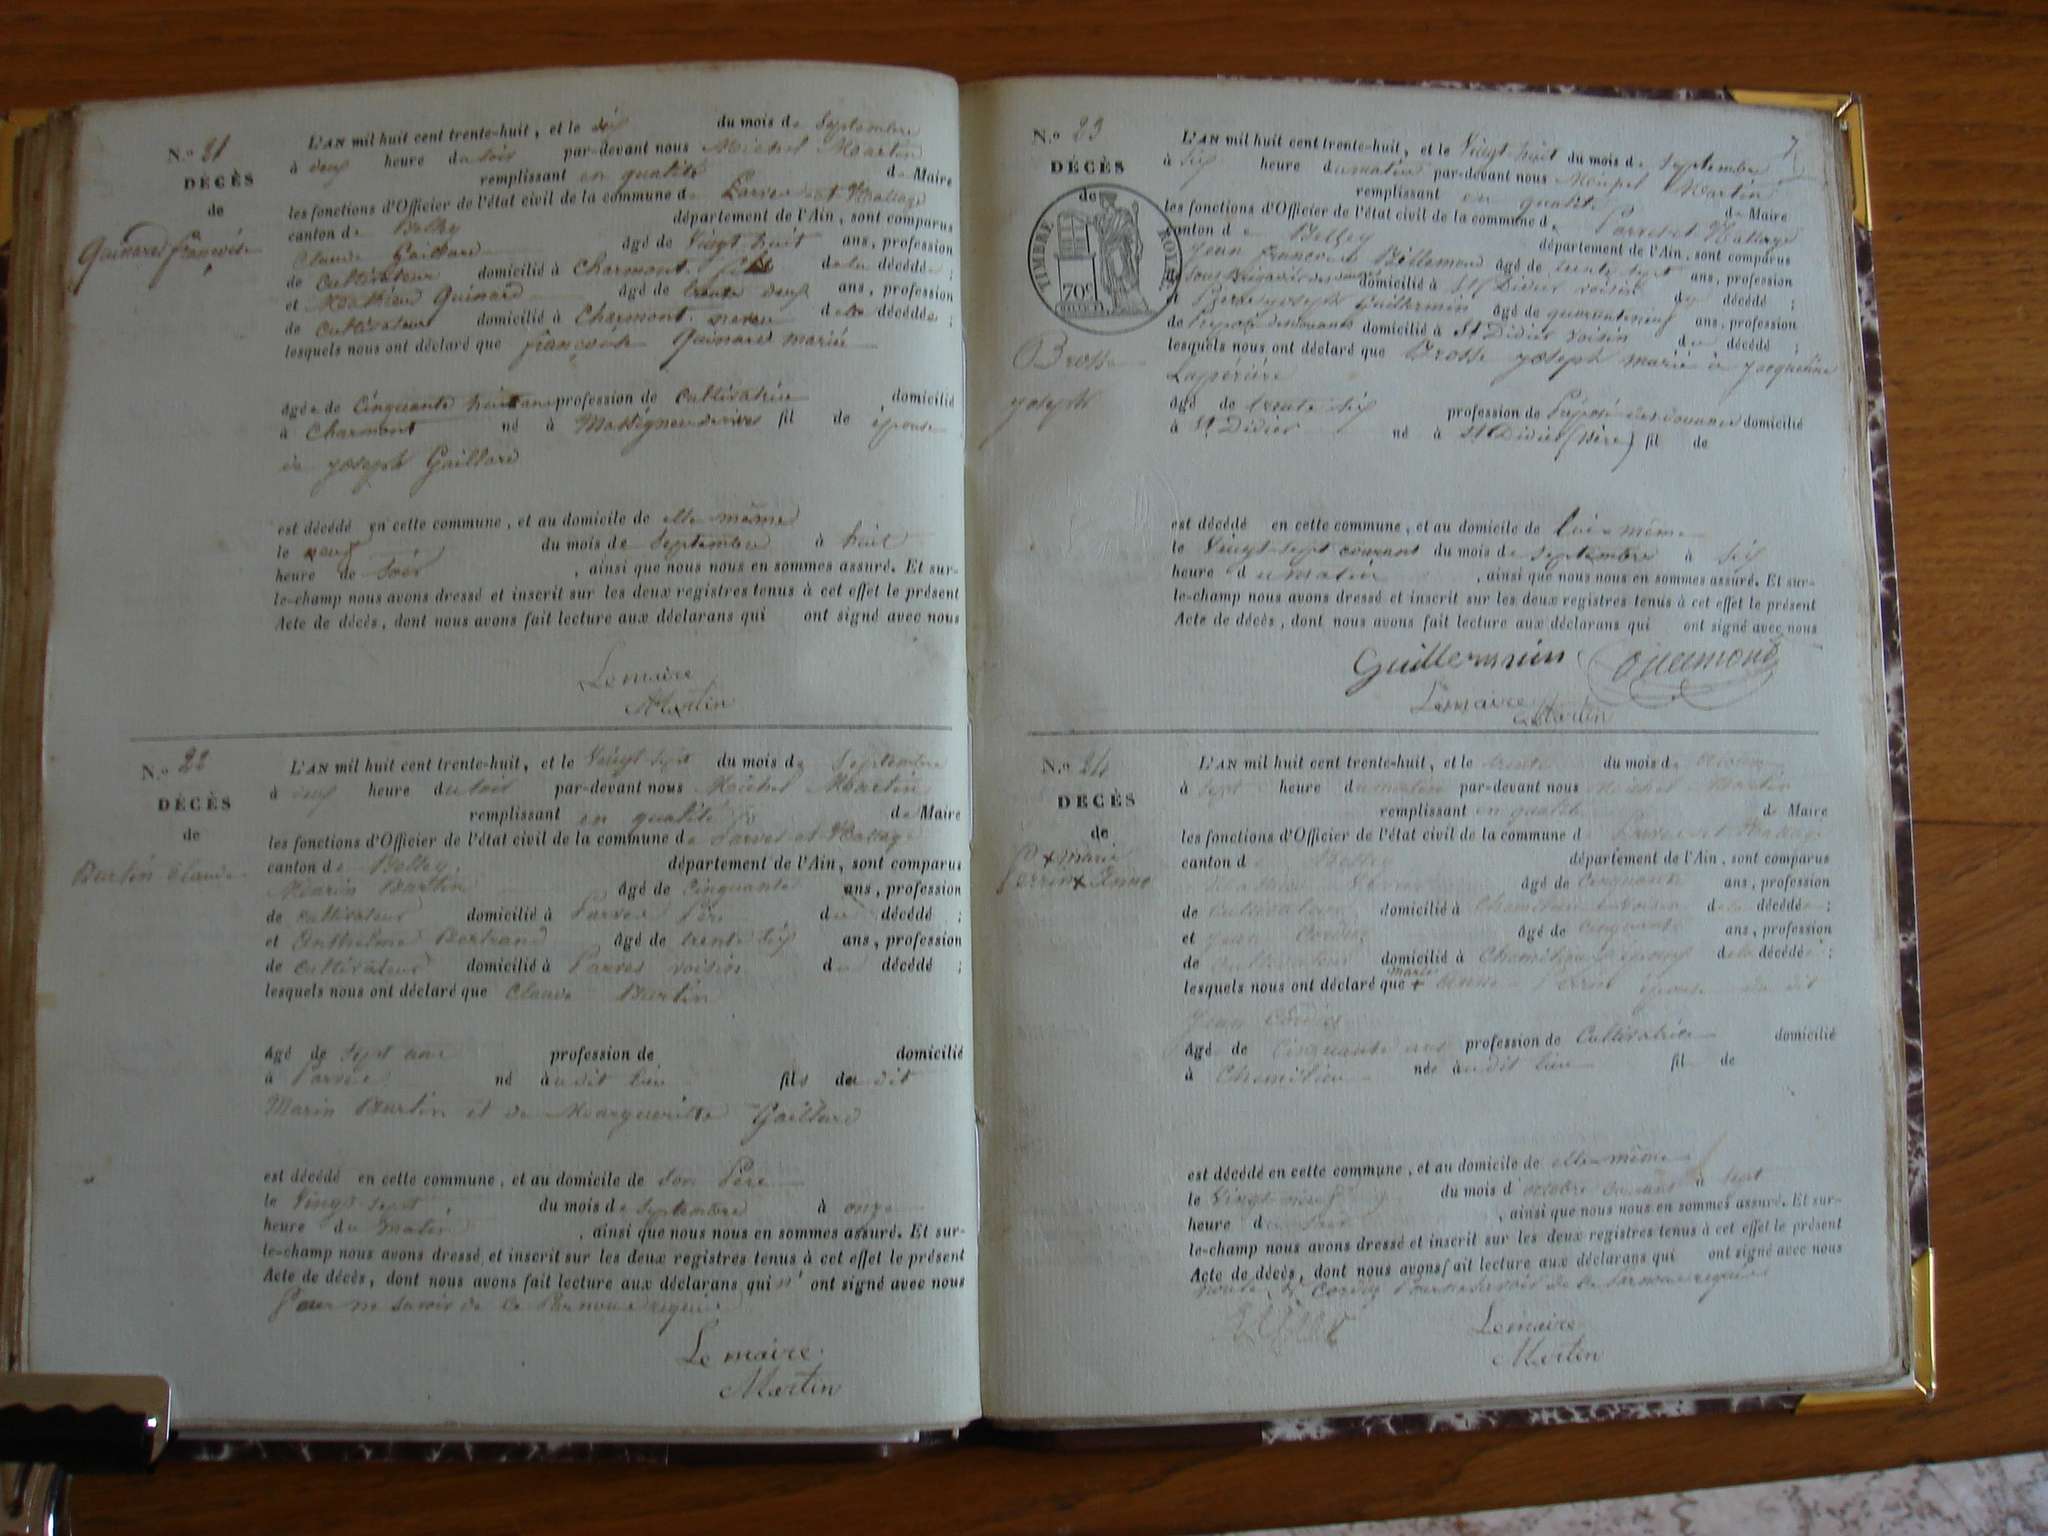 N.o 21
DÉCÈS
de
Guinard françoise
L'AN mil huit cent trente-huit, et le dix du mois de Septembre
à deux heure du soir par-devant nous Michel Martin
remplissant en qualité de Maire
les fonctions d'Officier de l'état civil de la commune de Parves et Nattage
canton de Belley département de l'Ain, sont comparus
Claude Gaillard âgé de Vingt huit ans, profession
de Cultivateur domicilié à Charmont de la décédée ;
et Guinard âgé de trente deux ans, profession
de Cultivateur domicilié à Charmont neveu de la décédée ;
lesquels nous ont déclaré que françoise Guinard mariée
âgée de Cinquante huit ans profession de Cultivatrice domicilié
à Charmont né à fil de épouse
de joseph Gaillard
est décédé en cette commune, et au domicile de elle même
le neuf du mois de Septembre à huit
heure de Soir, ainsi que nous nous en sommes assuré. Et sur-
le-champ nous avons dressé et inscrit sur les deux registres tenus à cet effet le présent
Acte de décès, dont nous avons fait lecture aux déclarans qui ont signé avec nous
Lemaire
Martin
N.o 22
DÉCÈS
de
Burtin Claude
L'AN mil huit cent trente-huit, et le Vingt sept du mois de Septembre
à deux heure du soir par-devant nous Michel Martin
remplissant en qualité de Maire
les fonctions d'Officier de l'état civil de la commune de Parves et Nattage
canton de Belley département de l'Ain, sont comparus
Marin Burtin âgé de Cinquante ans, profession
de Cultivateur domicilié à Parves Père du décédé ;
et Anthelme Bertrand âgé de trente six ans, profession
de Cultivateur domicilié à Parves voisin du décédé ;
lesquels nous ont déclaré que Claude Burtin
âgé de Sept ans profession de domicilié
à Parves né àu dit lieu fils de du dit
Marin Burtin et de Margueritte Gaillard
est décédé en cette commune, et au domicile de son Père
le Vingt sept du mois de Septembre à onze
heure du Matin, ainsi que nous nous en sommes assuré. Et sur-
le-champ nous avons dressé et inscrit sur les deux registres tenus à cet effet le présent
Acte de décès, dont nous avons fait lecture aux déclarans qui n' ont signé avec nous
Pour ne savoir de ce Par nous requis
Le maire
Martin
N.o 23
DÉCÈS
de
TIMBRE ROYAL
70c
Brosse
joseph
7
L'AN mil huit cent trente-huit, et le Vingt huit du mois de Septembre
à six heure du matin par-devant nous Michel Martin
remplissant en qualité de Maire
les fonctions d'Officier de l'état civil de la commune de Parves et Nattage
canton de Belley département de l'Ain, sont comparus
Jean françois âgé de trente sept ans, profession
domicilié à St Didier voisin du décédé ;
et Pierre joseph Guillermin âgé de quarante neuf ans, profession
de Préposé des douanes domicilié à St Didier voisin du décédé ;
lesquels nous ont déclaré que Brosse joseph marié à jacqueline
âgé de trente six profession de Préposé des douanes domicilié
à St Didier né à St Didier (Isère) fil de
est décédé en cette commune, et au domicile de lui même
le Vingt sept courant du mois de Septembre à six
heure du matin, ainsi que nous nous en sommes assuré. Et sur-
le-champ nous avons dressé et inscrit sur les deux registres tenus à cet effet le présent
Acte de décès, dont nous avons fait lecture aux déclarans qui ont signé avec nous
Guillermin
Lemaire
Martin
N.o 24
DÉCÈS
de
Marie
L'AN mil huit cent trente-huit, et le trente du mois de
à sept heure du matin par-devant nous Michel Martin
remplissant en qualité de Maire
les fonctions d'Officier de l'état civil de la commune de Parves et Nattage
canton de Belley département de l'Ain, sont comparus
âgé de Cinquante ans, profession
de Cultivateur domicilié à Chemilieu voisin de la décédée ;
et jean Cordier âgé de Cinquante ans, profession
de Cultivateur domicilié à Chemilieu époux de la décédée ;
lesquels nous ont déclaré que marie épouse du dit
jean Cordier
âgé de Cinquante ans profession de Cultivatrice domicilié
à Chemilieu née àu dit lieu fil de
est décédé en cette commune, et au domicile de elle même
le Vingt neuf du mois d'octobre courant à sept
heure du soir, ainsi que nous nous en sommes assuré. Et sur-
le-champ nous avons dressé et inscrit sur les deux registres tenus à cet effet le présent
Acte de décès, dont nous avons fait lecture aux déclarans qui ont signé avec nous
Lemaire
Martin